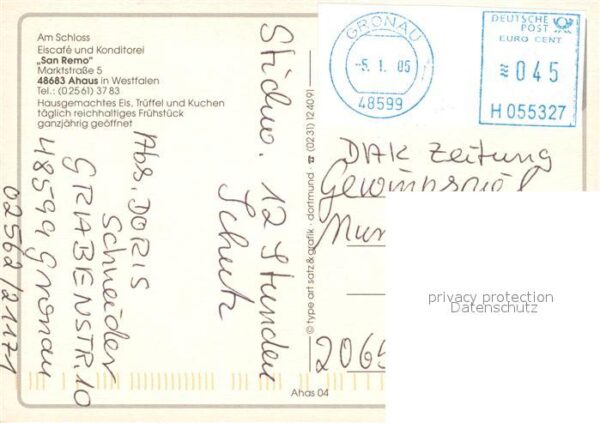 Am Schloss
Eiscafé und Konditorei
„San Remo"
Marktstraße 5
48683 Ahaus in Westfalen
Tel.: (02561) 3783
Hausgemachtes Eis, Trüffel und Kuchen
täglich reichhaltiges Frühstück
ganzjährig geöffnet
Abs. DORIS
Schneider
GRABENSTR. 10
48599 Gronau
02562/21171
Stichw. 12 Stunden
Schutz
© type art satz & grafik · dortmund · ☎ (0231) 124091
GRONAU
-5. 1. 05
48599
DEUTSCHE
POST
EURO CENT
045
H 055327
DAK Zeitung
Gewinnspiel
2065
privacy protection
Datenschutz
Ahas 04